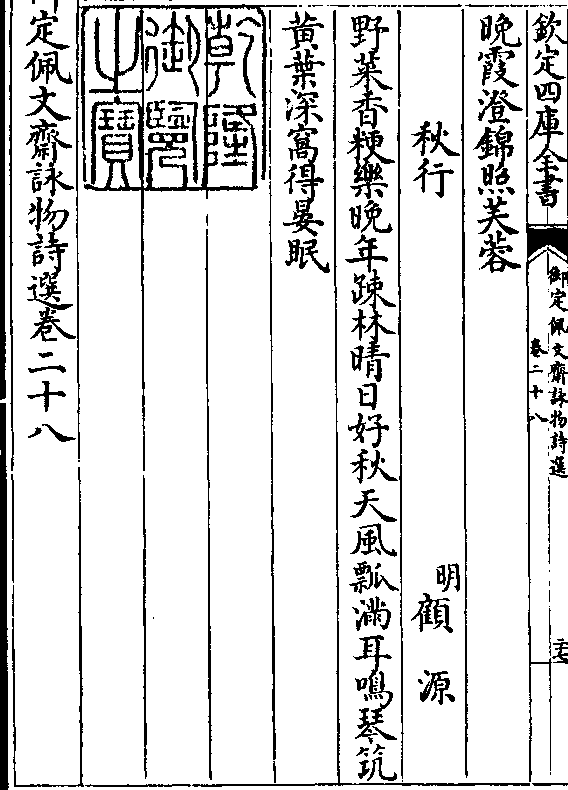 欽定四庫全書
御定佩文齋詠物詩選
卷二十八
二七
晚霞澄錦照芙蓉
秋行
明顧源
野菜香粳樂晚年踈林晴日好秋天風瓢滿耳鳴琴筑
黄葉深窩得晏眠
乾隆
御覽
之寶
御定佩文齋詠物詩選卷二十八